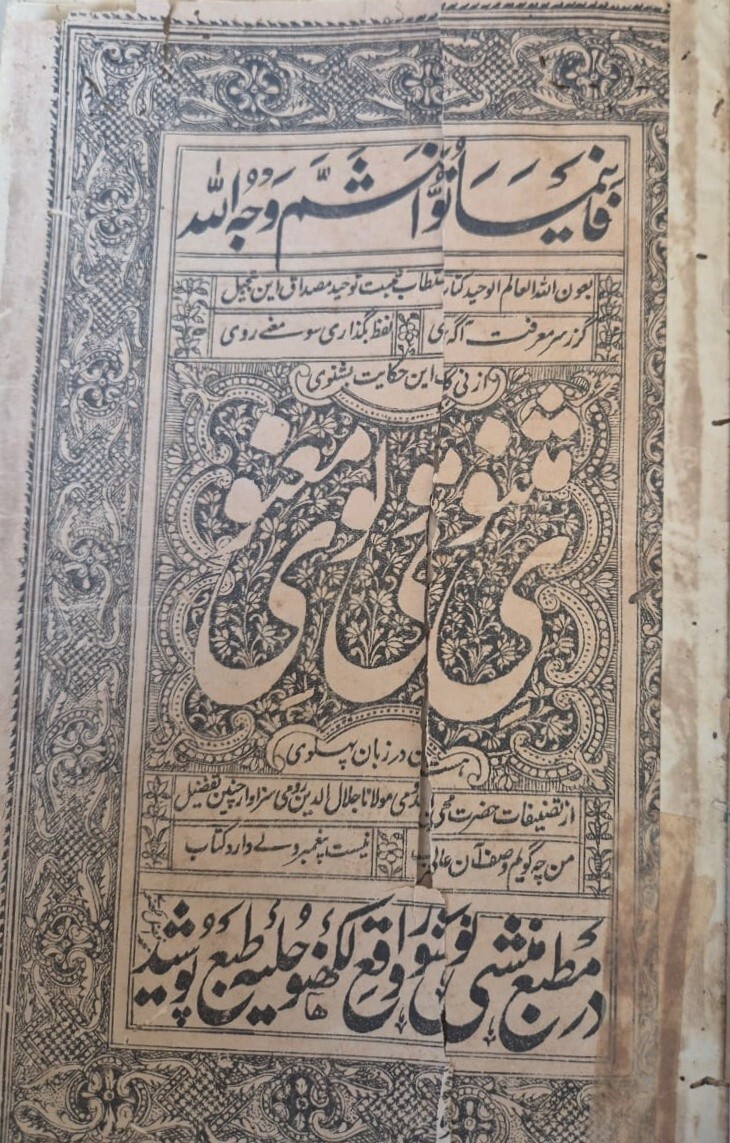 فاینما تولوا فثم وجه الله
بعون الله العالم الوحید کتاب مستطاب قیمت توحید مصداق این تجیل
گر ز سر معرفت آگه شوی لفظ بگذاری سوے معنے روی
از نی کلک این حکایت بشنوی
مثنوی مولوی معنوی
هست قرآن در زبان پهلوی
از تصنیفات حضرت مولانا جلال الدین رومی سزاوار چنین تفضیل
من چه گویم وصف آن عالی جناب نیست پیغمبر ولے دارد کتاب
در مطبع منشی نولکشور واقع لکهنؤ حلیه طبع پوشید